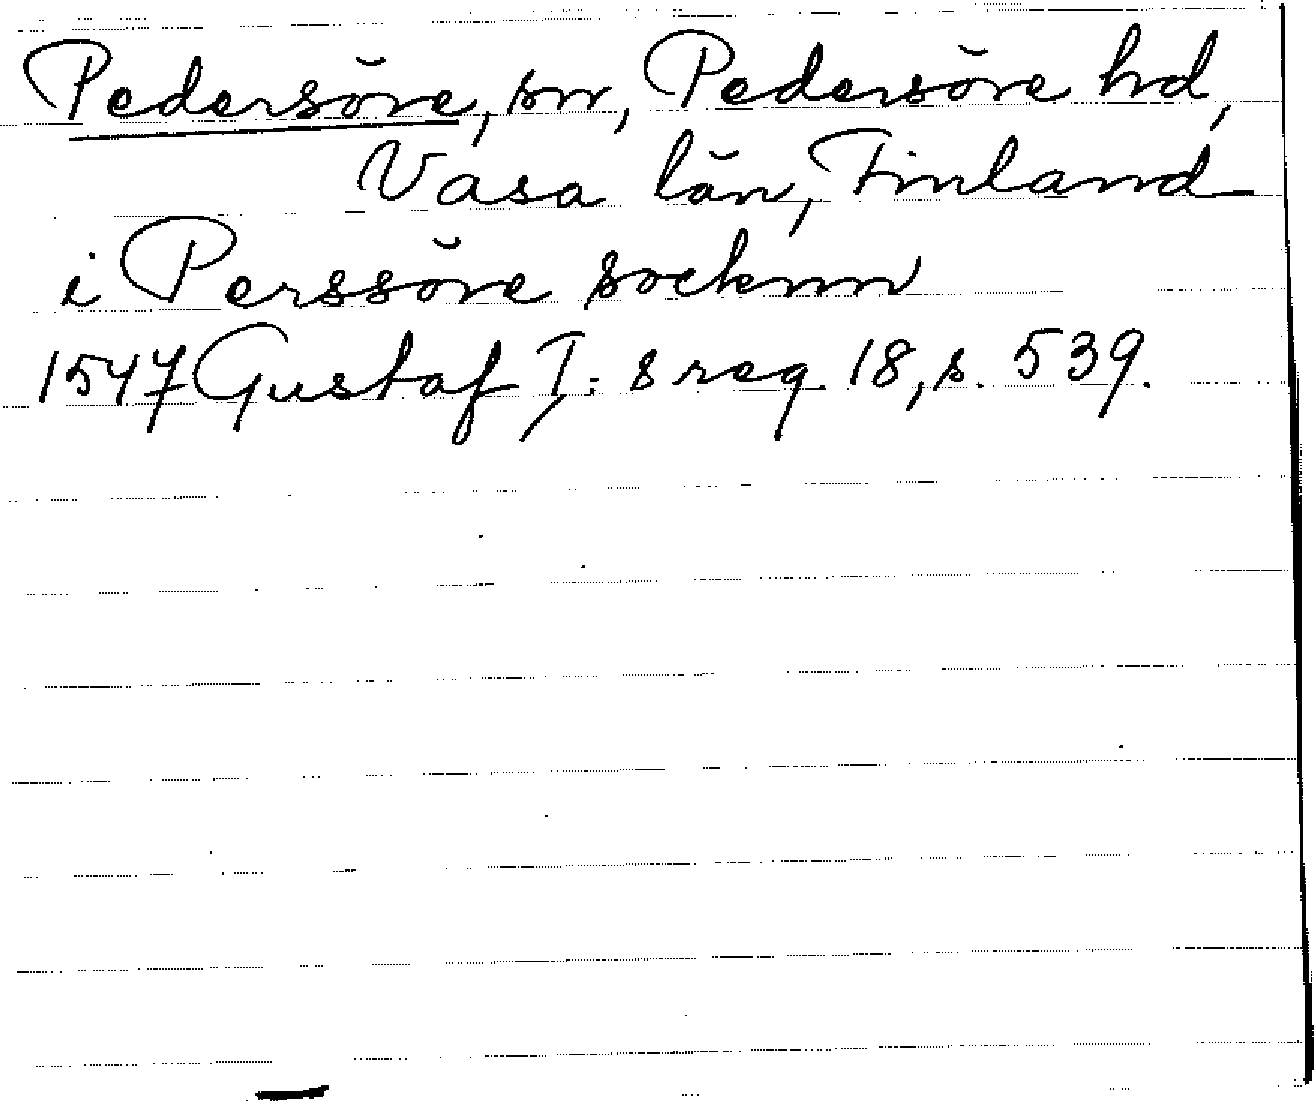 Pedersöre, sn, Pedersöre hd,
Vasa län, Finland
i Perssöre socknn
1547 Gustaf I:s reg 18, s. 539.